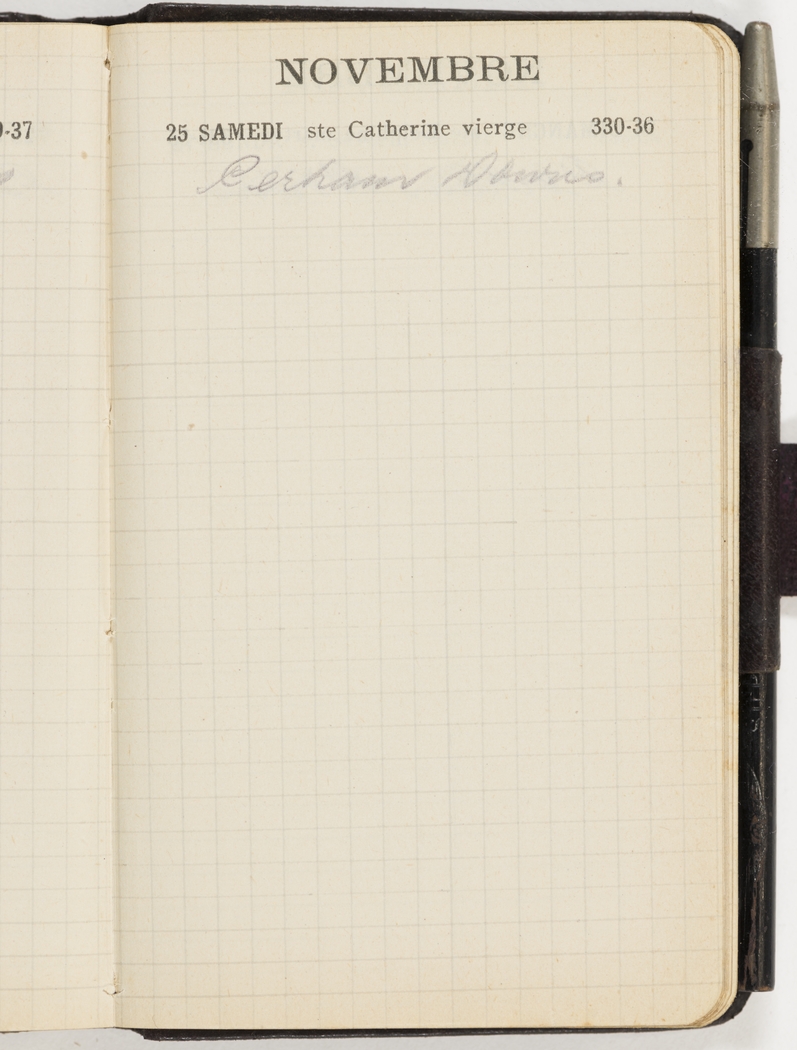 NOVEMBRE
25 SAMEDI ste Catherine vierge 330-36
Perham Downs.
-37
s